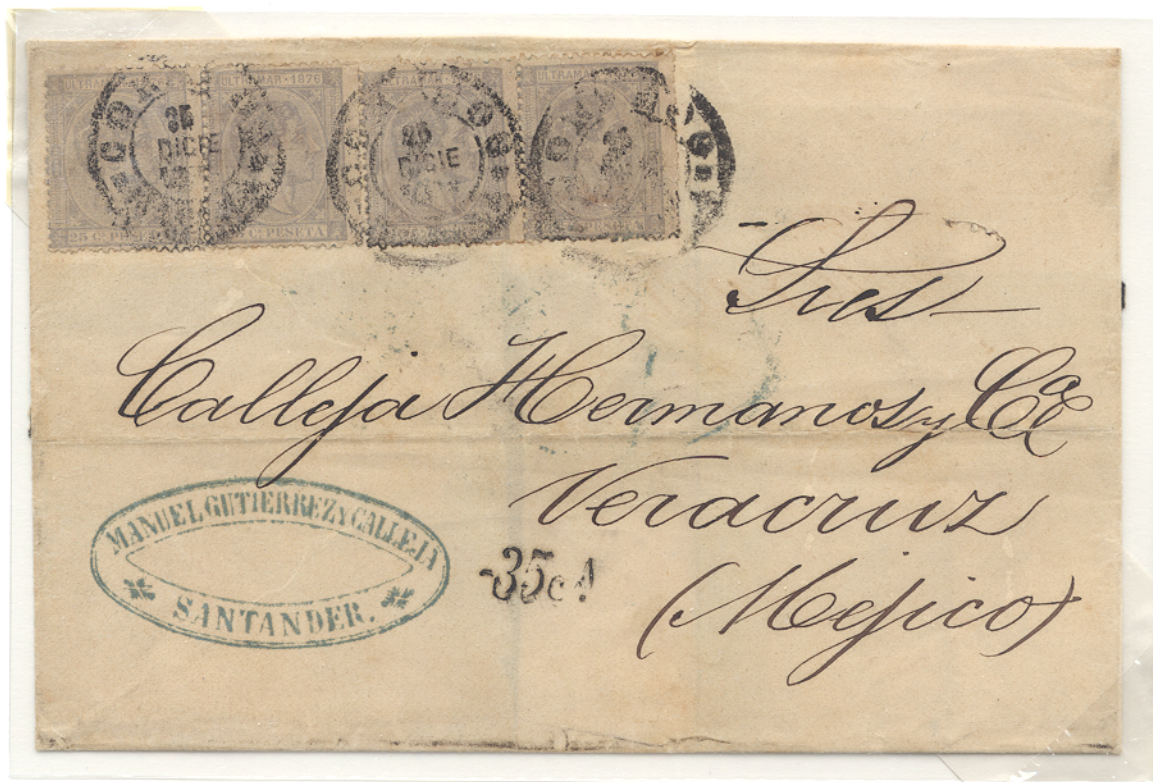 ULTRAMAR · 1876
25 Cs PESETA
CORREOS
25
DICIE
25
DICIE
Sres
Calleja Hermanos y Ca
Veracruz
(Mejico)
MANUEL GUTIERREZ Y CALLEJA
SANTANDER.
35c